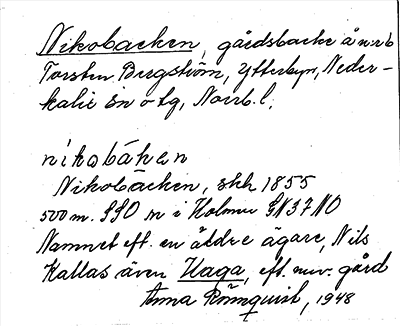 Nikobacken, gårdsbacke å nr 6
Torsten Bergström, Ytterbyn, Neder-
kalix sn o tg, Norrb. l.
nikobáken
Nikobacken, skh 1855
500 m. SSO nr i Holmen GN37NO
Namnet eft. en äldre ägare, Nils
Kallas även Haga, eft. nuv. gård
Anna Rönnqvist, 1948